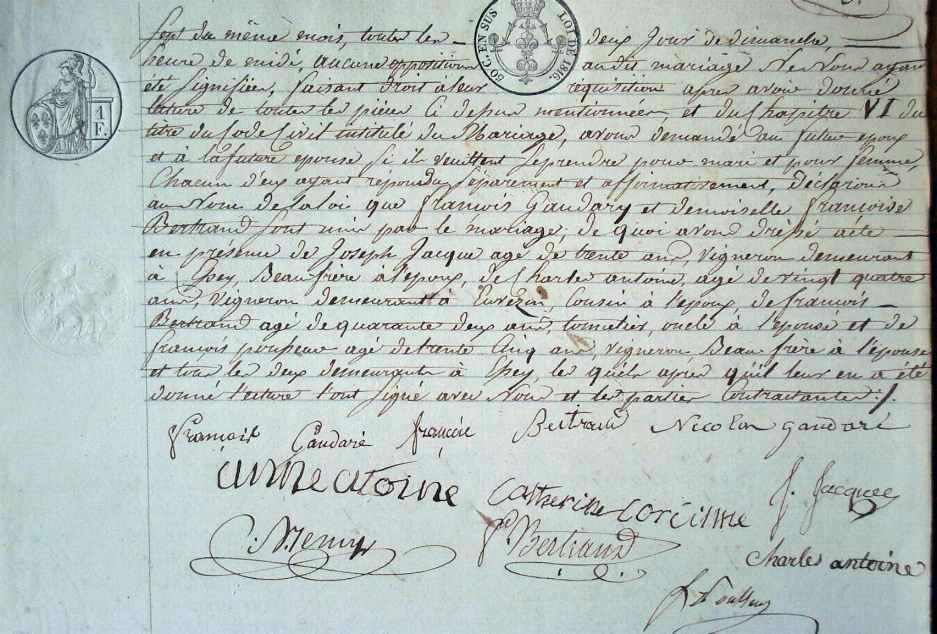 Sept du même mois, toutes les deux jour de dimanche,
heure de midi, aucune opposition audit mariage Ne Nous ayant
été signifiée, faisant droit à leur réquisition après avoir donné
lecture de toutes les pièces Ci dessus mentionnées, et du Chapitre VI du
titre du Code Civil intitulé du Mariage, avons demandé au futur epoux
et à la future epouse si ils veuillent se prendre pour mari et pour femme,
Chacun d'eux ayant répondu séparément et affirmativement, déclarons
au Nom de la loi que françois Gaudary et demoiselle françoise
Bertrand sont unis par le mariage, de quoi avons dréssé acte
en présence de Joseph Jacque agé de trente ans, vigneron demeurant
à Beau frère à l'epoux, de Charles antoine, agé de vingt quatre
ans, vigneron demeurant à cousin à l'epoux de françois
Bertrand agé de quarante deux ans, tonnelier, oncle à l'epouse et de
françois agé de trente Cinq ans, vigneron Beau frère à l'épouse
et tous les deux demeurants à les quels après qu'il leur en a été
donné lecture l'ont signé avec Nous et les parties Contractantes ./.
françois Gaudaré françoise Bertrand Nicolas gaudaré
anne atoine Catherine J. Jacques
Bertrand
Charles antoine
50 C. EN SUS
LOI DE 1816.
1 F.